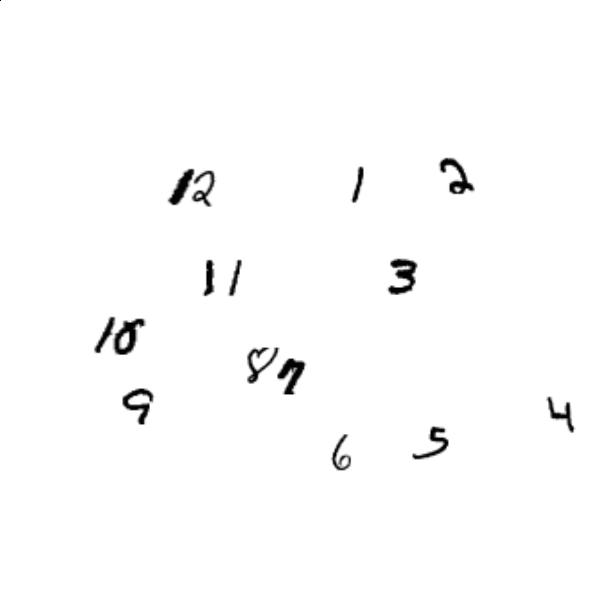 12 1 2
11 3
10 8 7
9 4
6 5